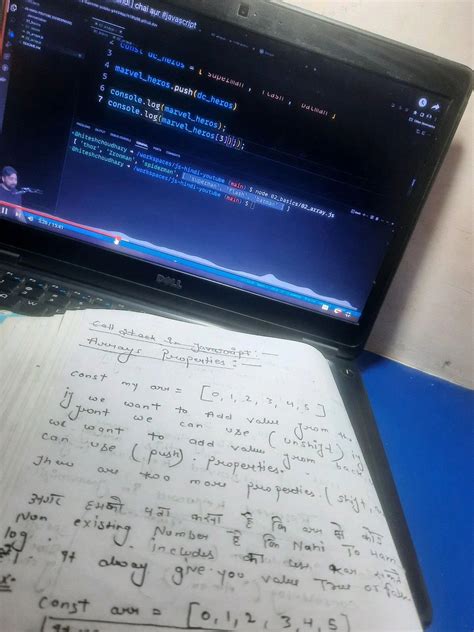 chai aur #javascript
2 const dc_heros = [ "superman", "flash", "batman" ]
3
4 marvel_heros.push(dc_heros)
5
6 console.log(marvel_heros);
7 console.log(marvel_heros[3]
@hiteshchoudhary → /workspaces/js-hindi-youtube (main) $ node 02_basics/02_array.js
[ 'thor', 'Ironman', 'spiderman', [ 'superman', 'flash', 'batman' ] ]
@hiteshchoudhary → /workspaces/js-hindi-youtube (main) $
DELL
Call Stack In Javascript :—
Arrays Properties :—
const my arr = [0, 1, 2, 3, 4, 5]
if we want to Add value from
front we can use (unshift) if
we want to add value from back
can use (push) properties.
There are too more properties. (shift,
अगर हमको पता करना है कि arr में कोई
Non existing Number है कि Nahi To Ham
includes का use kar सकते
It alway give you value True or
const arr = [0, 1, 2, 3, 4, 5]